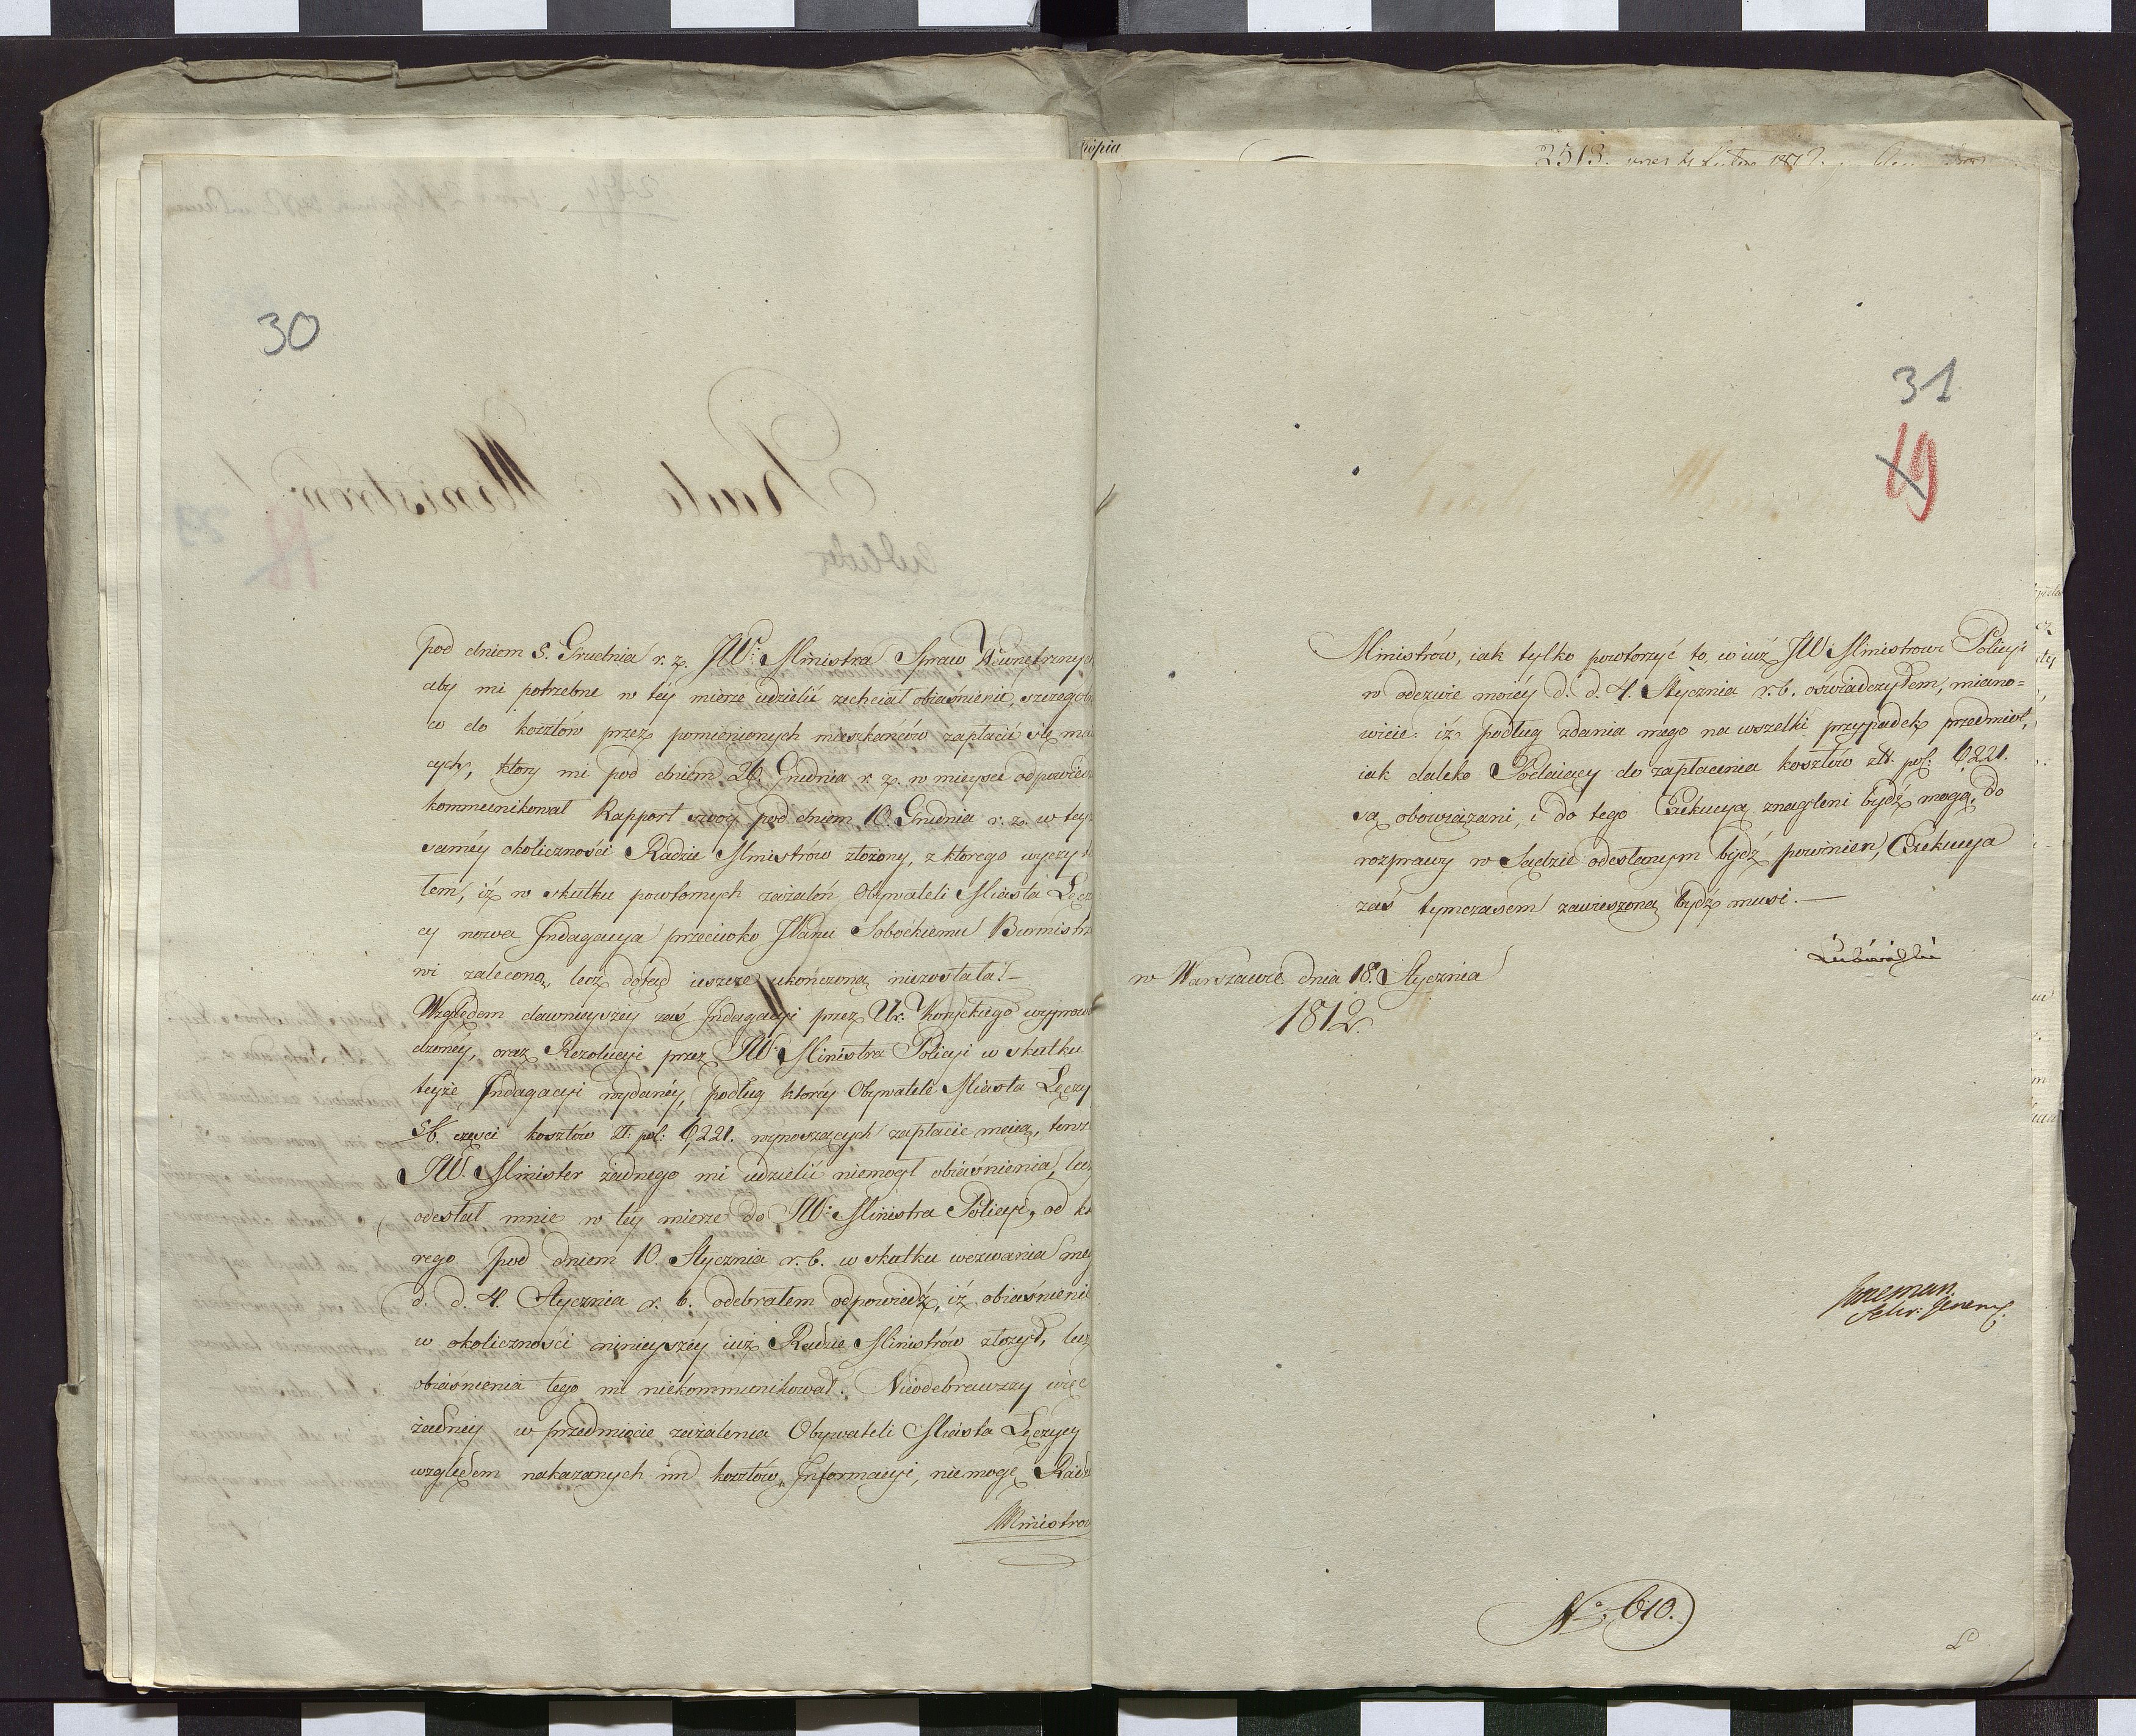 30
pod dniem 5. Grudnia r. z. JW: Ministra Spraw Wewnętrznych
aby mi potrzebne w téy mierze udzielić zechciał obiaśnienie, szczegól
co do kosztów przez pomienionych mieszkańców zapłacić się ma
cych, który mi pod dniem 26. Grudnia r. z. w mieysce odpowied
kommunikował Rapport swoy pod dniem 10. Grudnia r. z. w tey
saméy okoliczności Radzie Ministrów złożony, z którego wyczy
łem, iż w skutku powtornych zażaleń Obywateli Miasta Łęcz
cy nowa Indagacya przeciwko JPanu Sobockiemu Burmistrz
wi zaleconą, lecz dotąd ieszcze ukończoną niezostała!—
Względem dawnieyszey zaś Indagacyi przez Ur. Konyckiego wyprow
dzonéy, oraz Rezolucyi przez JW. Ministra Policyi w skutku
teyże Indagacyi wydanéy, podług któréy Obywatele Miasta Łęczy
5/6. części kosztów zł: pol: 6,221. wynoszących zapłacić maią, tenże
JW. Minister żadnego mi udzielić niemogł obiaśnienia, lec
odesłał mnie w tey mierze do JW: Ministra Policyi, od kt
rego pod dniem 10. Stycznia r. b. w skutku wezwania meg
d. d. 4. Stycznia r. b. odebrałem odpowiedź, iż obiaśnienie
w okoliczności ninieyszéy iuż Radzie Ministrów złożył, lecz
obiaśnienia tego mi niekommunikował. Nieodebrawszy więc
żadnéy w przedmiocie zażalenia Obywateli Miasta Łęczycy
względem nakazanych im kosztów, Informacyi, niemogę Radz
Ministrow
Kopia
2513.
31
19
Ministrów, iak tylko powtorzyć to, co iuż JW. Ministrowi Policyi
w odezwie moiéy d. d. 4. Stycznia r. b. oświadczyłem, miano=
wicie: iż podług zdania mego na wszelki przypadek przedmiot,
iak daleko Podaiący do zapłacenia kosztów zł. pol: 6,221.
są obowiązani, i do tego Exekucyą znagleni bydź mogą, do
rozprawy w Sądzie odesłanym bydź powinien, Exekucya
zaś tymczasem zawieszoną bydź musi.—
Łubieński
w Warszawie dnia 18. Stycznia
1812.
Sekr: Generl.
No. 610.